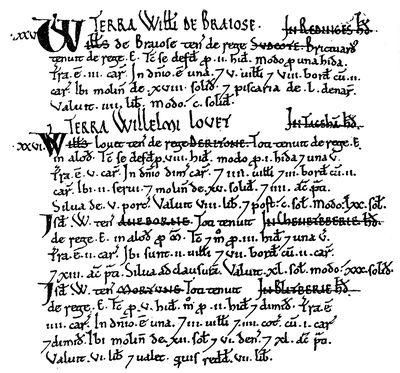 .XXV. TERRA WILLI DE BRAIOSE. IN REDINGES HD.
WILLS de Braiose ten̄ de rege SUDCOTE. Brictuard
tenuit de rege .E. Tc̄ se defd̄ p̄ .ii. hid̄. modo p̄ una hida.
Tr̄a .ē. .iii. car̄. In dn̄io .ē. una. 7 v. uilli 7 viii. bord̄ cū .ii.
car̄. Ibi molin̄ de .xviii. solid̄. 7 piscaria de .l. denar̄.
Valuit .iiii. lib̄. modo .c. solid̄.
TERRA WILLELMI LOVET IN Tacehā HD.
.XXVI. Wills Louet ten̄ de rege Toti tenuit de rege .E.
in alod̄. Tc̄ se defd̄ p̄ viii. hid̄. modo p̄ .i. hida 7 una v̄.
Tr̄a .ē. v. car̄. In dn̄io dim̄ car̄. 7 iiii. uilli 7 iii. bord̄ cū .ii.
car̄. Ibi .ii. serui 7 molin̄ de .xv. solid̄. 7 iiii. ac̄ p̄ti.
Silua de .v. porc̄. Valuit viii. lib̄. 7 post .c. sol̄. Modo .lx. sol̄.
Isd̄ .W. ten̄ ANEBORNE. Toti tenuit
de rege .E. in alod̄ p̄ Tc̄ 7 m̄ p̄ .iii. hid̄ 7 una v̄.
Tr̄a .ē. iii. car̄. Ibi sunt .ii. uilli 7 vii. bord̄ cū .ii. car̄.
7 xiii. ac̄ p̄ti. Silua ad clausurā. Valuit .xl. sol̄. modo .xxx. solid̄.
Isd̄ .W. ten̄ MORTUNE. Toti tenuit IN BLITBERIE HD.
de rege .E. Tc̄ p̄ .v. hid̄. m̄ p̄ .ii. hid̄ 7 dimid̄. Tr̄a .ē.
iiii. car̄. In dn̄io .ē. una. 7 iii. uilli 7 iiii. cot̄. cū .i. car̄
7 dimid̄. Ibi molin̄ de .xii. sol̄ 7 vi. den̄. 7 xl. ac̄ p̄ti.
Valuit .vi. lib̄ 7 ualet. quis redd̄. vii. lib̄.